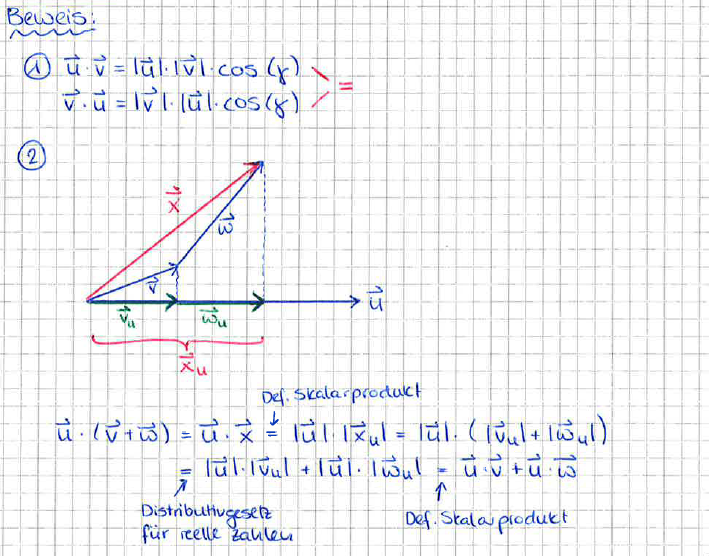 Beweis:
① u⃗ · v⃗ = |u⃗| · |v⃗| · cos(γ)
v⃗ · u⃗ = |v⃗| · |u⃗| · cos(γ)
=
②
x⃗
w⃗
v⃗
u⃗
v⃗ᵤ w⃗ᵤ
x⃗ᵤ
Def. Skalarprodukt
u⃗ · (v⃗ + w⃗) = u⃗ · x⃗ = |u⃗| · |x⃗ᵤ| = |u⃗| · (|v⃗ᵤ| + |w⃗ᵤ|)
= |u⃗| · |v⃗ᵤ| + |u⃗| · |w⃗ᵤ| = u⃗ · v⃗ + u⃗ · w⃗
Distributivgesetz
für reelle Zahlen
Def. Skalarprodukt